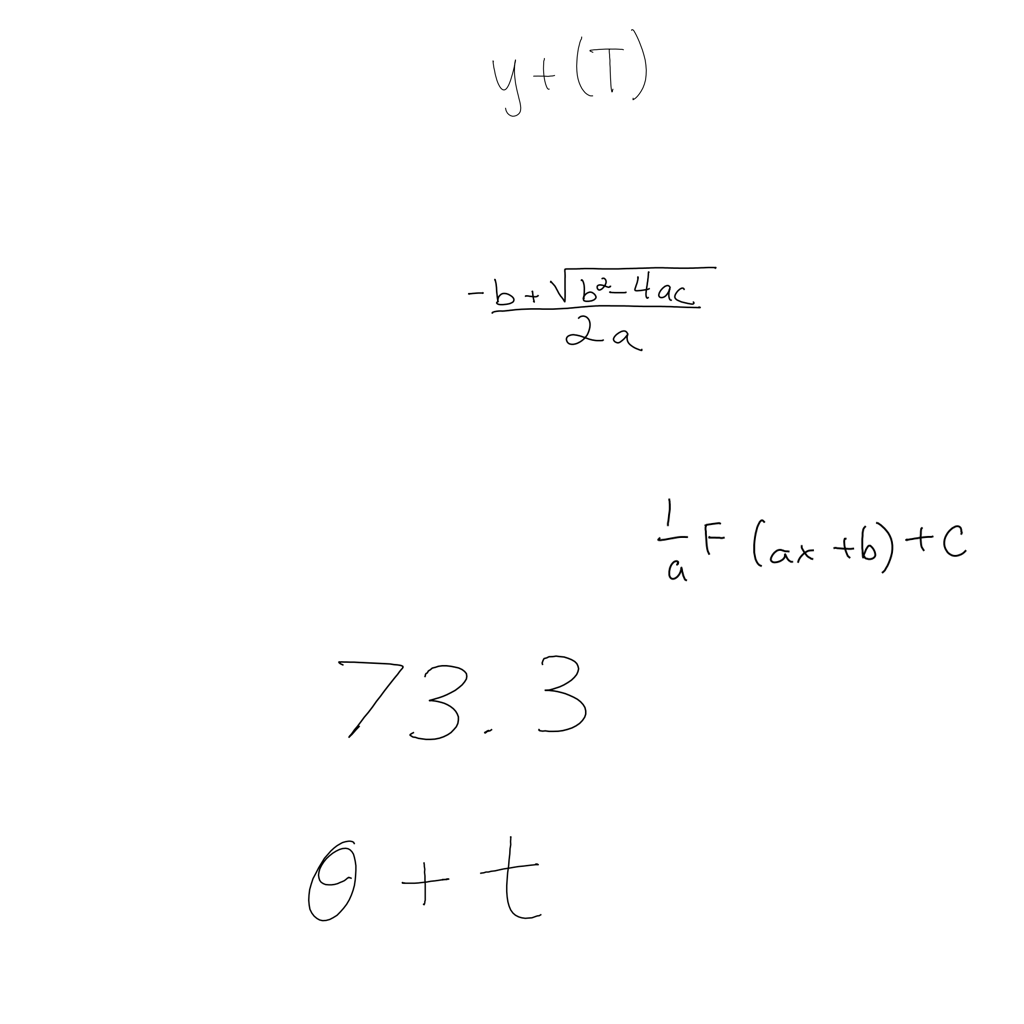 y + (T)
\frac{-b + \sqrt{b^2 - 4ac}}{2a}
\frac{1}{a} F (ax + b) + C
73.3
θ + t